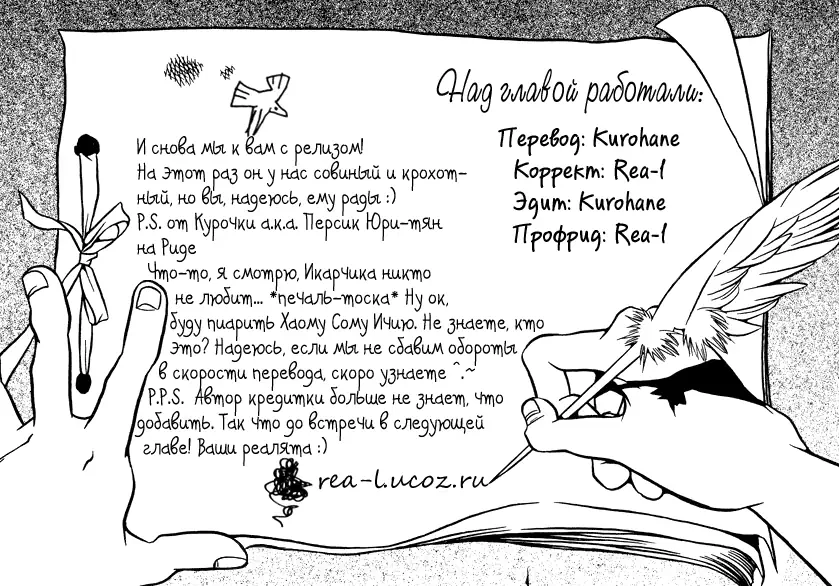 Над главой работали:
Перевод: Kurohane
Коррект: Rea-l
Эдит: Kurohane
Профрид: Rea-l
И снова мы к вам с релизом!
На этот раз он у нас совиный и крохот-
ный, но вы, надеюсь, ему рады :)
P.S. от Курочки a.k.a. Персик Юри-тян
на Риде
Что-то, я смотрю, Икарчика никто
не любит... *печаль-тоска* Ну ок,
буду пиарить Хаому Сому Ичию. Не знаете, кто
это? Надеюсь, если мы не сбавим обороты
в скорости перевода, скоро узнаете ^.~
P.P.S. Автор кредитки больше не знает, что
добавить. Так что до встречи в следующей
главе! Ваши реалята :)
rea-l.ucoz.ru